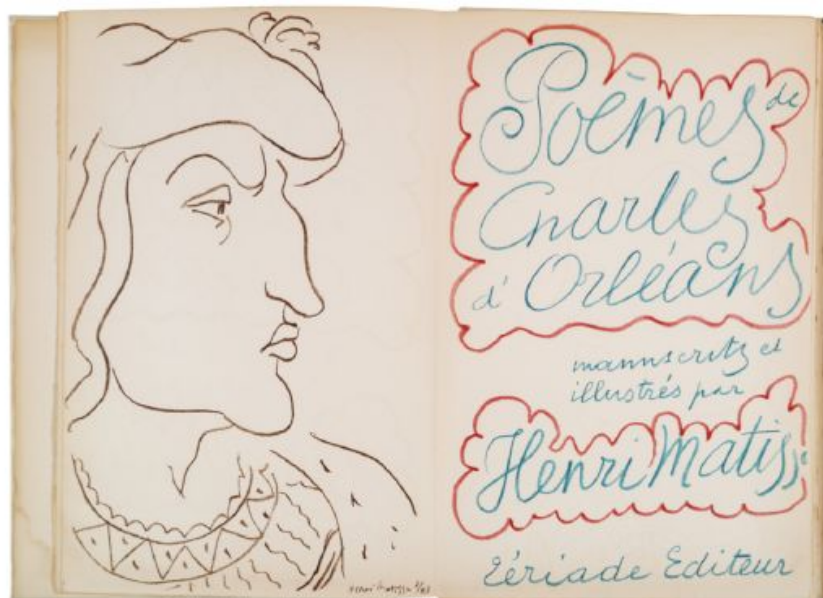 Henri Matisse
Poèmes de
Charles
d'Orléans
manuscrits et
illustrés par
Henri Matisse
Tériade Editeur